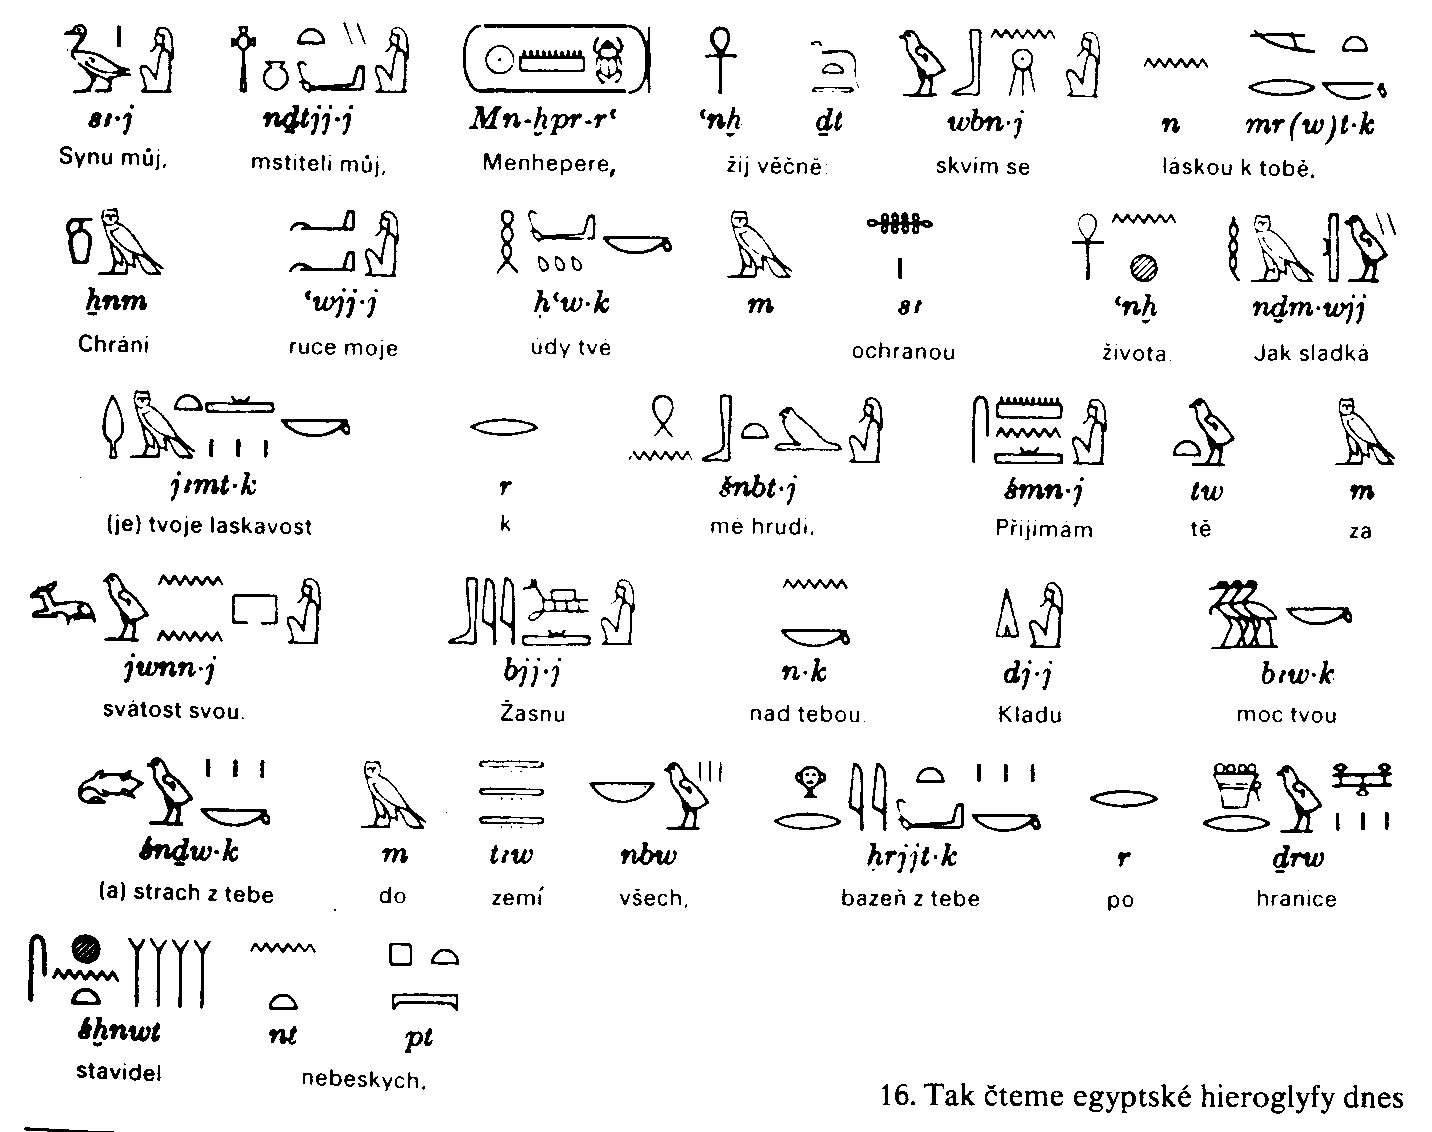 sꜣ·j nḏtjj·j Mn-ḫpr-rʿ ʿnḫ ḏt wbn·j n mr(w)t·k
Synu můj, mstiteli můj, Menhepere, žij věčně: skvím se láskou k tobě.
ẖnm ʿwjj·j ḥʿw·k m sꜣ ʿnḫ nḏm·wjj
Chrání ruce moje údy tvé ochranou života. Jak sladká
jꜣmt·k r šnbt·j śmn·j tw m
(je) tvoje laskavost k mé hrudi. Přijímám tě za
jwnn·j bjj·j n·k dj·j bꜣw·k
svátost svou. Žasnu nad tebou. Kladu moc tvou
śnḏw·k m tꜣw nbw ḥrjjt·k r ḏrw
(a) strach z tebe do zemí všech, bázeň z tebe po hranice
śḫnwt nt pt
stavidel nebeských.
16. Tak čteme egyptské hieroglyfy dnes